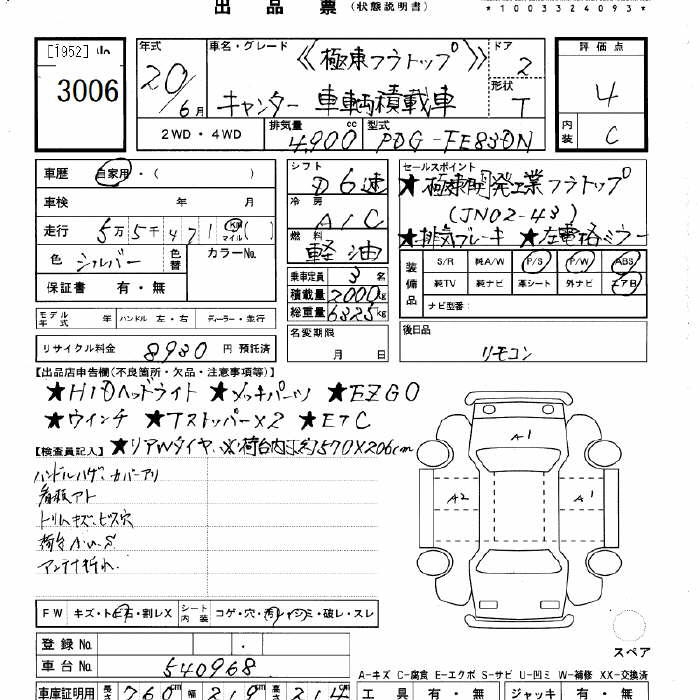 出 品 票 (状態説明書)
*1003324093*
[1952]
3006
年式 20/6月
車名・グレード 《極東フラトップ》
キャンター 車輌積載車
ドア 2
形状 T
評価点 4
内装 C
2WD・4WD 排気量 4,900 cc 型式 PDG-FE83DN
車歴 自家用・( )
車検 年 月
走行 5万5千471 km マイル ( )
色 シルバー 色替 カラーNo.
保証書 有・無
モデル年式 年 ハンドル 左・右 ディーラー・並行
リサイクル料金 8930 円 預託済
シフト D6速
冷房 A/C
燃料 軽油
乗車定員 3 名
積載量 2000 kg
総重量 6325 kg
名変期限 月 日
セールスポイント
★極東開発工業フラトップ
(JN02-43)
★排気ブレーキ ★左電格ミラー
装備品 S/R 純A/W P/S P/W ABS
純TV 純ナビ 革シート 外ナビ エアB
ナビ型番:
後日品
リモコン
【出品店申告欄(不良箇所・欠品・注意事項等)】
★HIDヘッドライト ★メッキパーツ ★EZGO
★ウインチ ★Tストッパー×2 ★ETC
★リアWタイヤ ※荷台内寸約570×206cm
【検査員記入】
ハンドルハゲ、カバーアリ
看板アト
トリムキズ、ビス穴
荷台A.U.S
アンテナ折れ
A1
A2
A1
FW キズ・トビ石・割レX シート内装 コゲ・穴・汚レ・シミ・破レ・スレ
スペア
登録 No.
車台 No. 540968
A-キズ C-腐食 E-エクボ S-サビ U-凹ミ W-補修 XX-交換済
車庫証明用 長さ 760 cm 幅 219 cm 高さ 214 cm
工具 有・無 ジャッキ 有・無